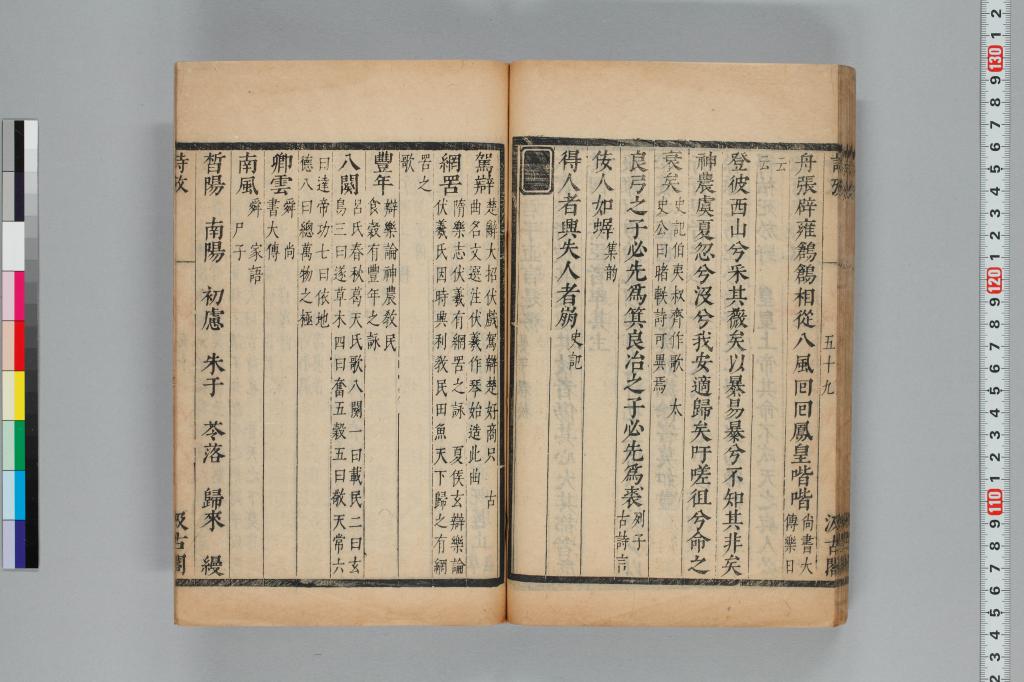 詩攷 五十九 汲古閣
舟張辟雍鶬鶬相從八風回回鳳皇喈喈
尚書大
傳樂曰
云
登彼西山兮采其薇矣以暴易暴兮不知其非矣
神農虞夏忽兮沒兮我安適歸矣吁嗟徂兮命之
衰矣
史記伯夷叔齊作歌 太
史公曰睹軼詩可異焉
良弓之子必先爲箕良冶之子必先爲裘
列子
古詩言
佞人如
集韵
得人者興失人者崩
史記
駕辯
楚辭大招伏戲駕辯楚好商只 古
曲名文選注伏羲作琴始造此曲
網罟
隋樂志伏羲有網罟之詠 夏侯玄辯樂論
伏羲氏因時興利教民田魚天下歸之有網
罟之
歌
豐年
辯樂論神農教民
食穀有豐年之詠
八闋
呂氏春秋葛天氏歌八闋一曰載民二曰玄
鳥三曰遂草木四曰奮五穀五曰敬天常六
曰達帝功七曰依地
德八曰總萬物之極
卿雲
舜 尚
書大傳
南風
舜 家語
尸子
晳陽 南陽 初慮 朱于 苓落 歸來 縵
詩攷 汲古閣